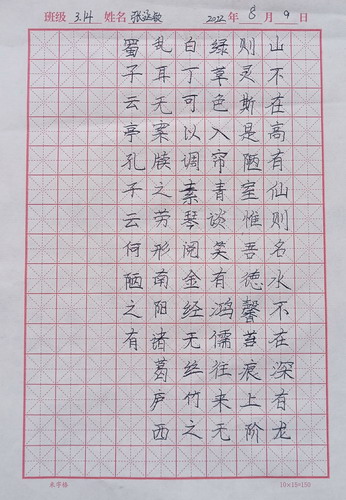 班级 3.14 姓名 2022年 8月 9日
山不在高有仙则名水不在深有龙
则灵斯是陋室惟吾德馨苔痕上阶
绿草色入帘青谈笑有鸿儒往来无
白丁可以调素琴阅金经无丝竹之
乱耳无案牍之劳形南阳诸葛庐西
蜀子云亭孔子云何陋之有
米字格 10×15=150